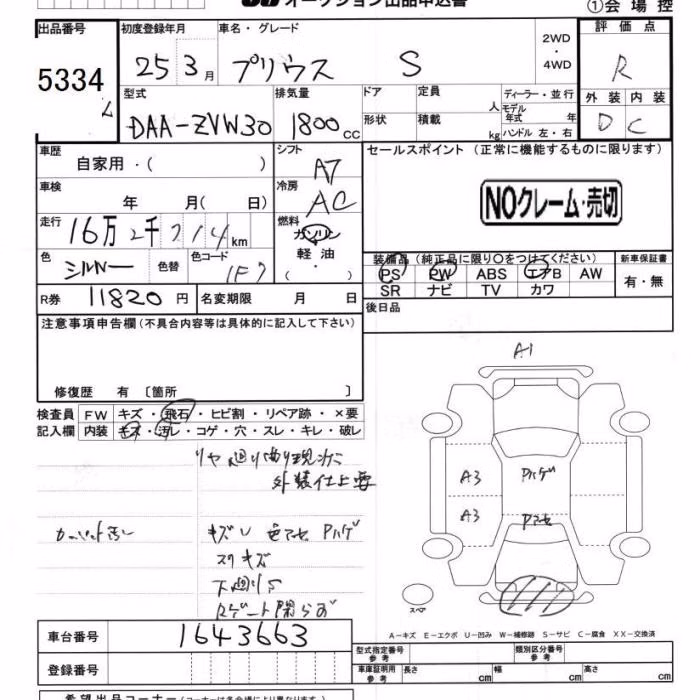 オークション出品申込書
①会場控
出品番号 初度登録年月 車名・グレード 2WD・4WD 評価点
5334 25 3月 プリウス S R
型式 排気量 ドア 定員 人 ディーラー・並行
外装 内装
DAA-ZVW30 1800cc 形状 積載 kg モデル年式 年 ハンドル 左・右 D C
車歴 自家用・( ) シフト A7 セールスポイント (正常に機能するものに限ります)
車検 年 月( 日) 冷房 AC NOクレーム・売切
走行 16万2千714km 燃料 ガソリン
軽油
・
( )
色 シルバー 色替 色コード 1F7
装備品 (純正品に限り○をつけてください) 新車保証書
PS PW ABS エアB AW 有・無
SR ナビ TV カワ
R券 11820円 名変期限 月 日 後日品
注意事項申告欄(不具合内容等は具体的に記入して下さい)
修復歴 有 〔箇所 〕
検査員 FW キズ・飛石・ヒビ割・リペア跡・×要
記入欄 内装 キズ・汚レ・コゲ・穴・スレ・キレ・破レ
リヤ廻り曲り現状
外装仕上要
キズU 色アセ Pハゲ
スリキズ
下廻りS
Rゲート閉らず
A1
A3 Pハゲ
A3 Pアセ
スペア
A-キズ E-エクボ U-凹み W-補修跡 S-サビ C-腐食 XX-交換済
車台番号 1643663
型式指定番号 参考 類別区分番号 参考
登録番号 車庫証明用 参考 長さ cm 幅 cm 高さ cm
希望出品コーナー